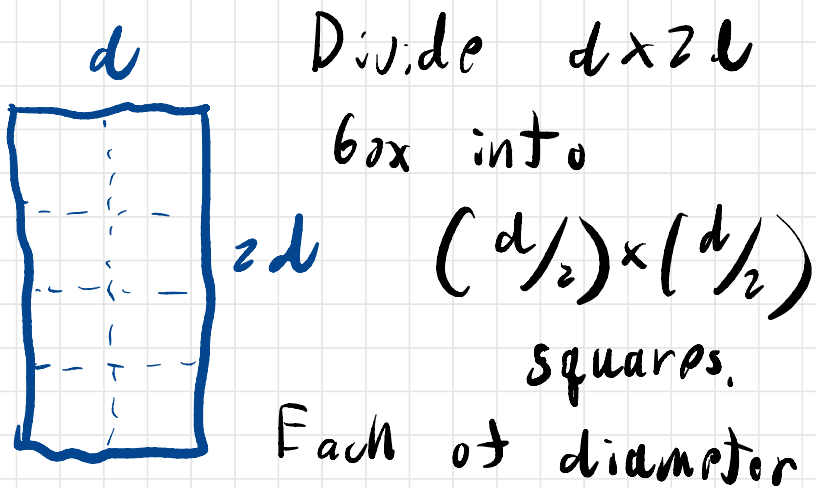 d
2d
Divide d x 2d
box into
(d/2) x (d/2)
squares.
Each of diameter